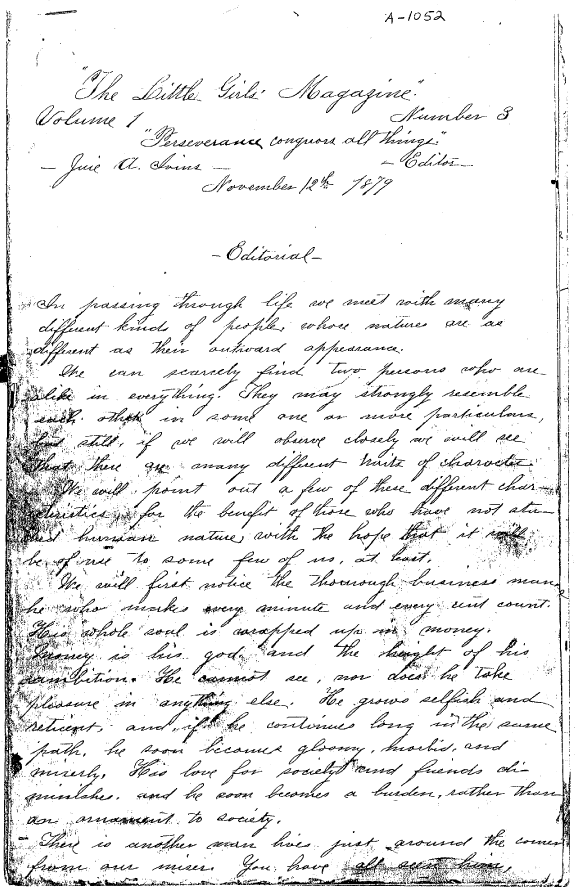 A-1052
"The Little Girls' Magazine".
Volume 1 Number 3
"Perseverance conquors all things"
- Juie A. Ivins - - Editor -
November 12th 1879
- Editorial -
In passing through life we meet with many
different kinds of people, whose natures are as
different as their outward appearance.
We can scarcely find two persons who are
alike in everything. They may strongly resemble
each other in some one or more particulars,
but still, if we will observe closely we will see
that there are many different traits of character.
We will point out a few of these different char-
acteristics, for the benefit of those who have not stu-
died human nature, with the hope that it will
be of use to some few of us, at least.
We will first notice the thorough business man,
he who makes every minute and every cent count.
His whole soul is wrapped up in money.
Money is his god, and the height of his
ambition. He cannot see, nor does he take
pleasure in anything else. He grows selfish and
reticent, and, if he continues long in the same
path, he soon becomes gloomy, morbid, and
miserly. His love for society and friends di-
minishes, and he soon becomes a burden, rather than
an ornament to society.
There is another man lives just around the corner
from our miser. You have all seen him,